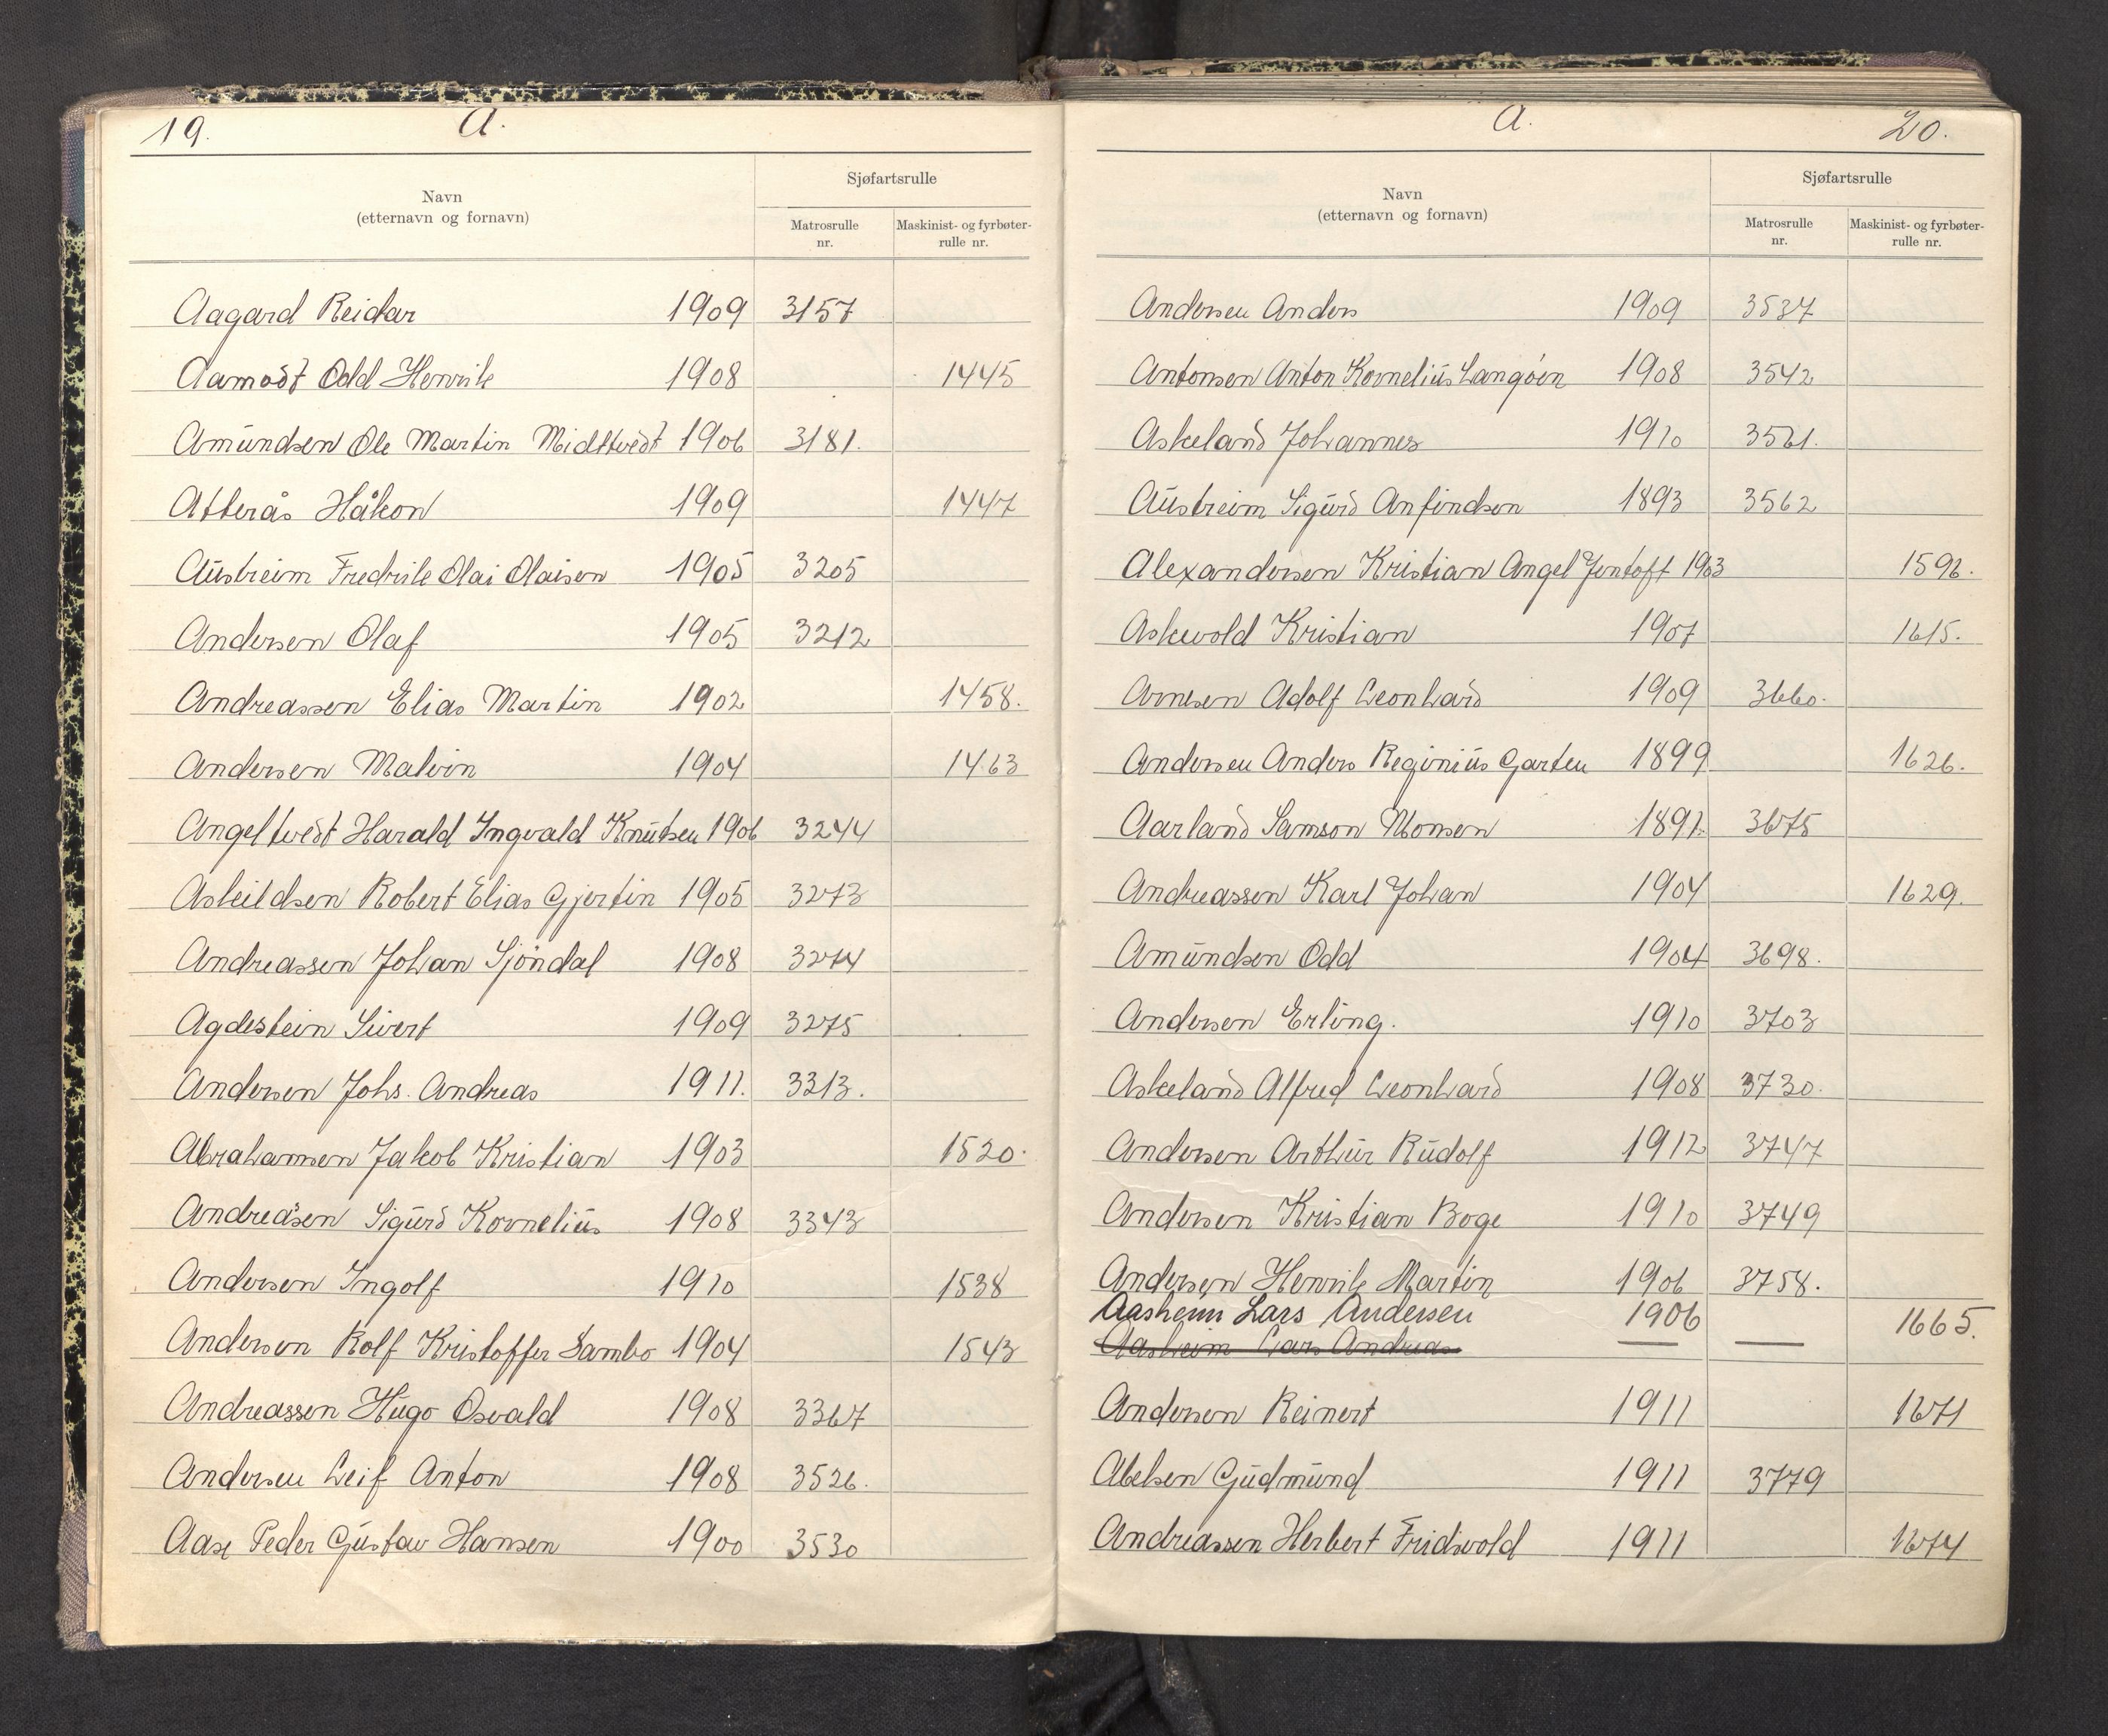 19.
A.
Navn
(etternavn og fornavn)
Sjøfartsrulle
Matrosrulle
nr.
Maskinist- og fyrbøter-
rulle nr.
Aagard Reidar 1909 3157
Aamodt Odd Henrik 1908 1445
Amundsen Ole Martin Midttvedt 1906 3181.
Atterås Håkon 1909 1447
Austreim Fredrik Olai Olaisen 1905 3205
Andersen Olaf 1905 3212
Andreassen Elias Martin 1902 1458.
Andersen Malvin 1904 1463
Angeltvedt Harald Ingvald Knutsen 1906 3244
Askildsen Robert Elias Gjertin 1905 3273
Andreassen Johan Sjöndal 1908 3274
Agdestein Sivert 1909 3275
Andersen Johs. Andreas 1911. 3313.
Abrahamsen Jakob Kristian 1903 1520.
Andreasen Sigurd Kornelius 1908 3343
Andersen Ingolf 1910 1538
Andersen Rolf Kristoffer Sambo 1904 1543
Andreassen Hugo Osvald 1908 3367
Andersen Leif Anton 1908 3526.
Aase Peder Gustav Hansen 1900 3530
A.
20.
Navn
(etternavn og fornavn)
Sjøfartsrulle
Matrosrulle
nr.
Maskinist- og fyrbøter-
rulle nr.
Andersen Anders 1909 3537
Antonsen Anton Kornelius Langöen 1908 3542
Askeland Johannes 1910 3561.
Austreim Sigurd Anfindsen 1893 3562
Alexandersen Kristian Angel Jentoft 1903 1592.
Askevold Kristian 1907 1615.
Arnesen Adolf Leonhard 1909 3660.
Andersen Anders Reginius Garten 1899 1626.
Aarland Samson Monsen 1891. 3675
Andreassen Karl Johan 1904 1629.
Amundsen Odd 1904 3698.
Andersen Erling. 1910 3703
Askeland Alfred Leonhard 1908 3730.
Andersen Arthur Rudolf 1912 3747
Andersen Kristian Boge 1910 3749
Andersen Henrik Martin 1906 3758.
Aasheim Lars Andersen 1906 1665.
Aasheim Lars Andreas — —
Andersen Reinert 1911 1671
Abelsen Gudmund 1911 3779
Andreassen Herbert Fridsvold 1911 1674